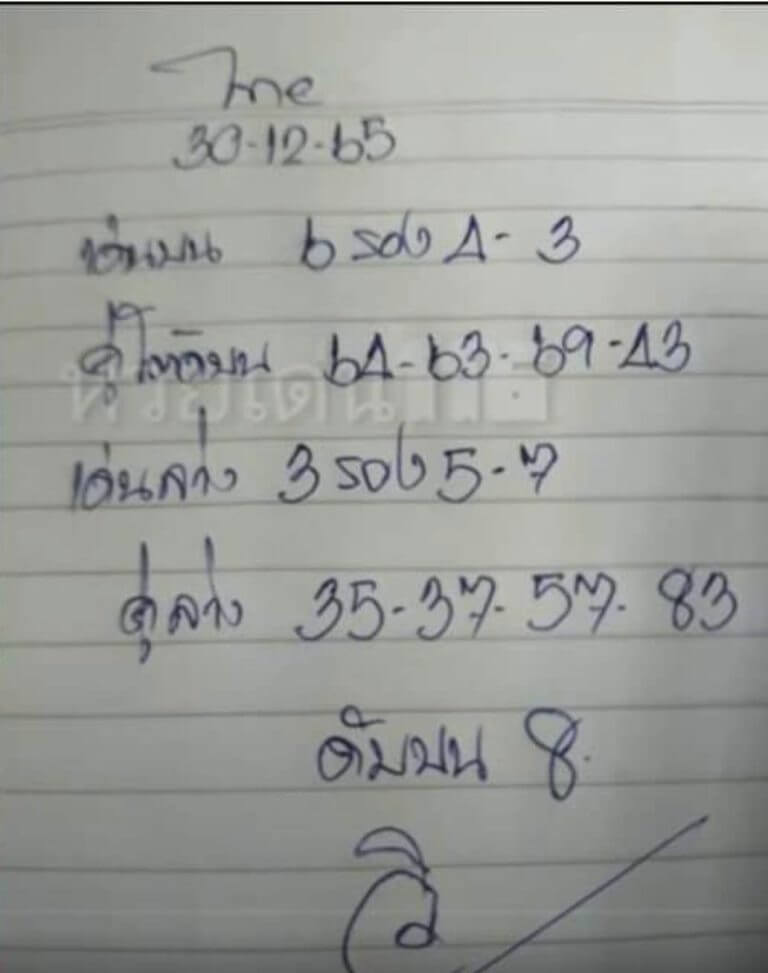 ไทย
30-12-65
เด่นบน 6 รอง 4-3
คู่โต๊ดบน 64-63-69-43
หวยเด่น
เด่นล่าง 3 รอง 5-7
คู่ล่าง 35-37-57-83
ดับบน 8.